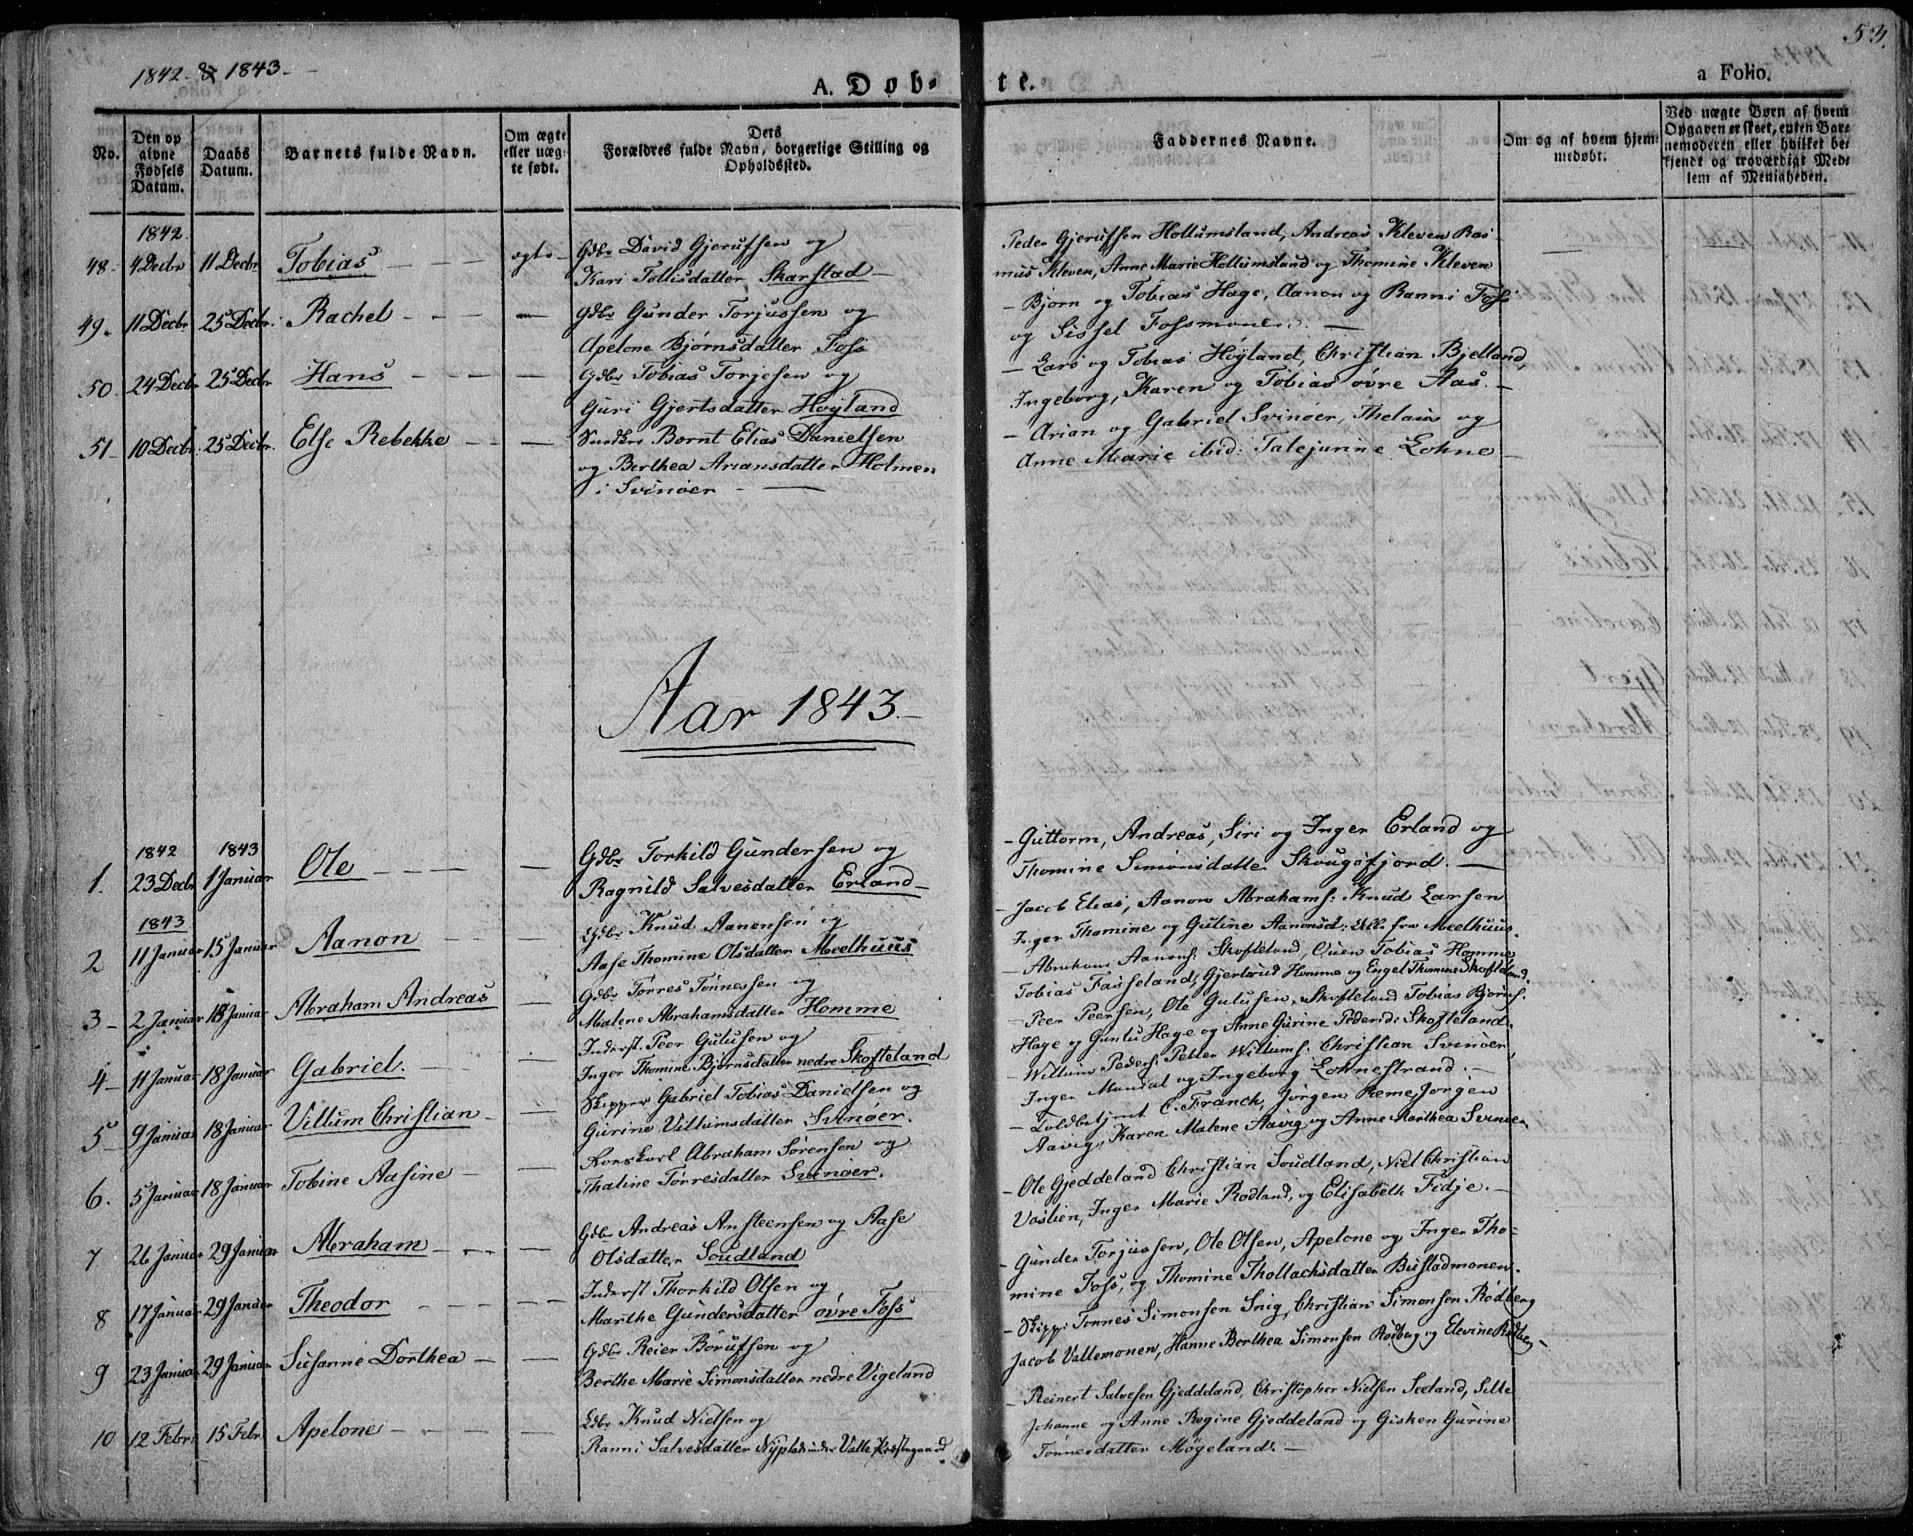 53.
1842 & 1843.
A. Døb-
te.
a Folio.
No.
Den op
givne
Fødsels
Datum.
Daabs
Datum.
Barnets fulde Navn.
Om ægte
eller uæg-
te født.
Dets
Forældres fulde Navn, borgerlige Stilling og
Opholdssted.
Faddernes Navne.
Om og af hvem hjem-
medøbt.
Ved uægte Børn af hvem
Opgaven er skeet, enten Bar-
nemoderen eller hvilket be-
kjendt og troværdigt Med-
lem af Menigheden.
1842
48- 4 Decbr 11 Decbr Tobias ægte- Gdbr David Gjerulfsen og
Kari Tollisdatter Skarstad-
Peder Gjerulfsen Hollumsland, Andreas Kleven Ras-
mus Kleven, Anne Marie Hollumsland og Thomine Kleven
49. 11 Decbr 25 Decbr. Rachel Gdbr Gunder Torjussen og
Apelone Bjørnsdatter Foss
- Bjørn og Tobias Hage, Aanon og Ranni Foss
og Sissel Fossmonen. -
50. 24 Decbr 25 Decbr Hans Gdbr Tobias Torjesen og
Guri Gjertsdatter Høyland
- Lars og Tobias Høyland, Christian Bjelland,
Ingeborg, Karen og Tobias øvre Aas. -
51- 10 Decbr. 25 Decbr. Else Rebekke Bernt Elias Danielsen
og Berthea Ariansdatter Holmen
i Svinøer -
- Arian og Gabriel Svinøer, og
Anne Marie ibid: Talejurine Lohne -
Aar 1843.-
1842 1843
1. 23 Decbr 1 Januar Ole Gdbr Torkild Gundersen og
Ragnild Salvesdatter Erland-
- Guttorm, Andreas, Siri og Inger Erland og
Thomine Simonsdatter Skougsfjord. -
1843
2 11 Januar 15 Januar Aanon Gdbr Knud Aanensen og
Aase Thomine Olsdatter Meelhuus
- Jacob Elias, Aanon Abrahams: Knud Larsen
Inger Thomine og Guline Aanonsd: alle fra Meelhuus.
3- 2 Januar 18 Januar Abraham Andreas Gdbr Torres Tønnessen og
Malene Abrahamsdatter Homme
- Abraham Aanons: Skofteland, Tobias Homme
Tobias Fasseland, Gjertrud Homme og Engel Thomine Skofteland
4- 11 Januar 18 Januar Gabriel. Inderst. Peer Gulusen og
Inger Thomine Bjørnsdatter nedre Skofteland
- Peer Peersen, Ole Gulusen, Skofteland Tobias Bjørns:
Hage og Gunlu Hage og Anne Gurine Pedersd: Skofteland.
5- 9 Januar 18 Januar Villum Christian Skipper Gabriel Tobias Danielsen og
Gurine Villumsdatter Svinøer.
Willum Peders: Petter Willums: Christian Svinøer,
Inger Mundal og Ingeborg Lohnestrand. -
6. 5 Januar 18 Januar Tobine Aasine Abraham Sørensen og
Thaline Torresdatter Svinøer.
- Toldbetjent C. Franck, Jørgen Jørgen
Aavig, Karen Malene Aavig og Anne Marthea Svinøer
7 26 Januar 29 Januar Abraham Gdbr Andreas Ansteensen og Aase
Olsdatter Soudland
- Ole Gjeddeland Christian Soudland, Niel Christian
Vaslien, Inger Marie Rodland, og Elisabeth Fidje. -
8 17 Januar 29 Januar Theodor Inderst Thorkild Olsen og
Marthe Gundersdatter øvre Foss
- Gunder Torjussen, Ole Olsen, Apelone og Inger Tho-
mine Foss, og Thomine Thollachsdatter Bustadmonen.
9 23 Januar 29 Januar Susanne Dorthea Gdbr Reier Børufsen og
Berthe Marie Simonsdatter nedre Vigeland
- Skipp: Tønnes Simonsen Snig, Christian Simonsen Rødberg
Jacob Vallemonen, Hanne Berthea Simonsen Rødberg og Elevine Rødberg-
10 12 Febr: 15 Febr. Apelone Knud Nielsen og
Ranni Salvesdatter under Valle Præstegaard
- Reinert Salvesen Gjeddeland, Christopher Nielsen Seeland, Sille
Johanne og Anne Regine Gjeddeland og Gisken Gurine
Tønnesdatter Møgeland. -